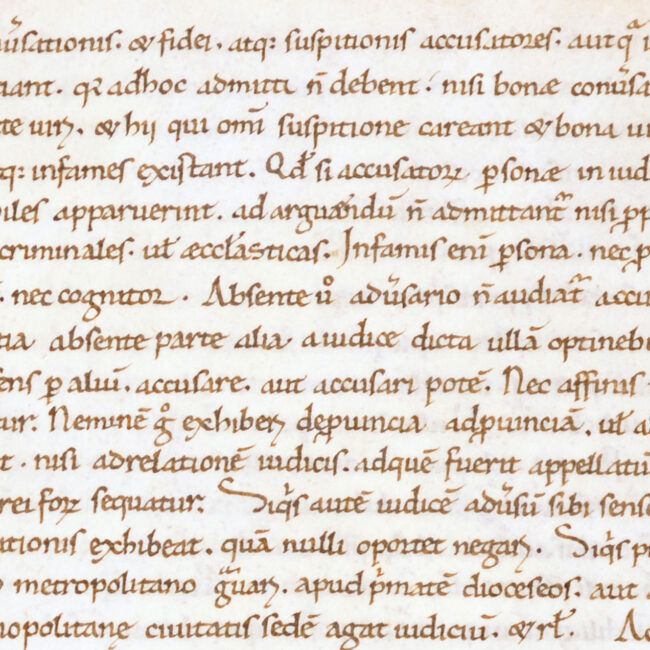 uˀsationis. & fidei. atq: suspitionis accusatores. aut qᵃ
iant. qꝛ adhoc admitti n̄ debent. nisi bonæ conuˀsa
te uiꝝ. & hij qui omī suspitione careant & bona
tq: infames existant. Qđ si accusatoꝝ ꝑsonæ in iud
biles apparuerint. ad arguendū n̄ admittantᷣ nisi ꝓp
criminales. uł æccłasticas. Infamis enī ꝑsona. nec ꝓ
nec cognitor. Absente uͦ aduˀsario n̄ audiatᷣ accu
tia absente parte alia a iudice dicta ullā optineb
ens ꝑ aliū. accusare. aut accusari potē. Nec affinis
tur. Neminē gͦ exhiberi de ꝓuincia ad ꝓuinciā. uł a
t. nisi ad relationē iudicis. ad quē fuerit appellatū
rei foꝝ sequatur. Siqˢ autē iudicē aduˀsū sibi sens
ationis exhibeat. quā nulli oportet negari. Siqˢ
metropolitano gᵃuari. apud pⁱmatē dioceseos. aut
nopolitanę ciuitatis sedē agat iudiciū. & rł. A